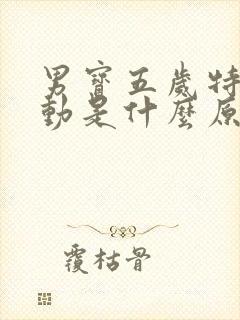 男寶五歲特
動是什麼原
覆枯骨